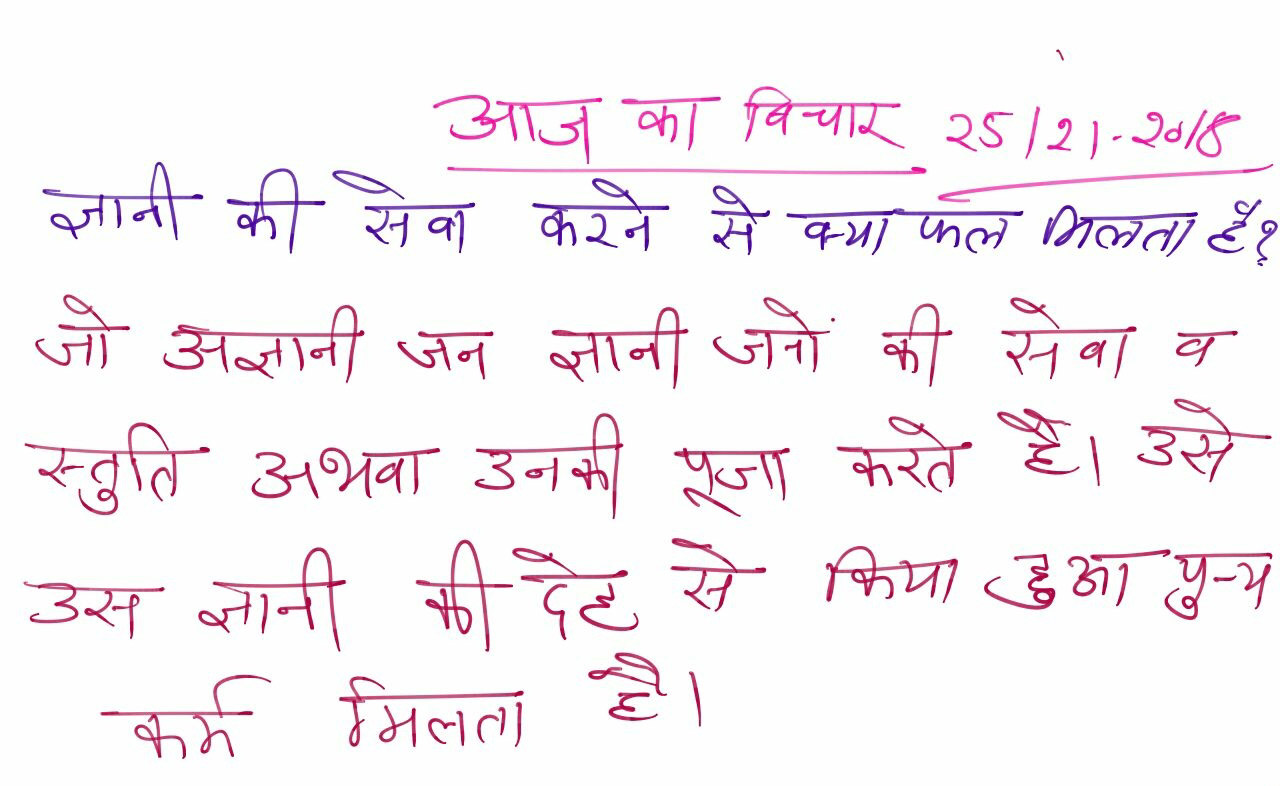 आज का विचार २५/२/-२०/8
ज्ञानी की सेवा करने से क्या फल मिलता है?
जो अज्ञानी जन ज्ञानी जनों की सेवा व
स्तुति अथवा उनकी पूजा करते है। उसे
उस ज्ञानी की देह से किया हुआ पुन्य
कर्म मिलता है।